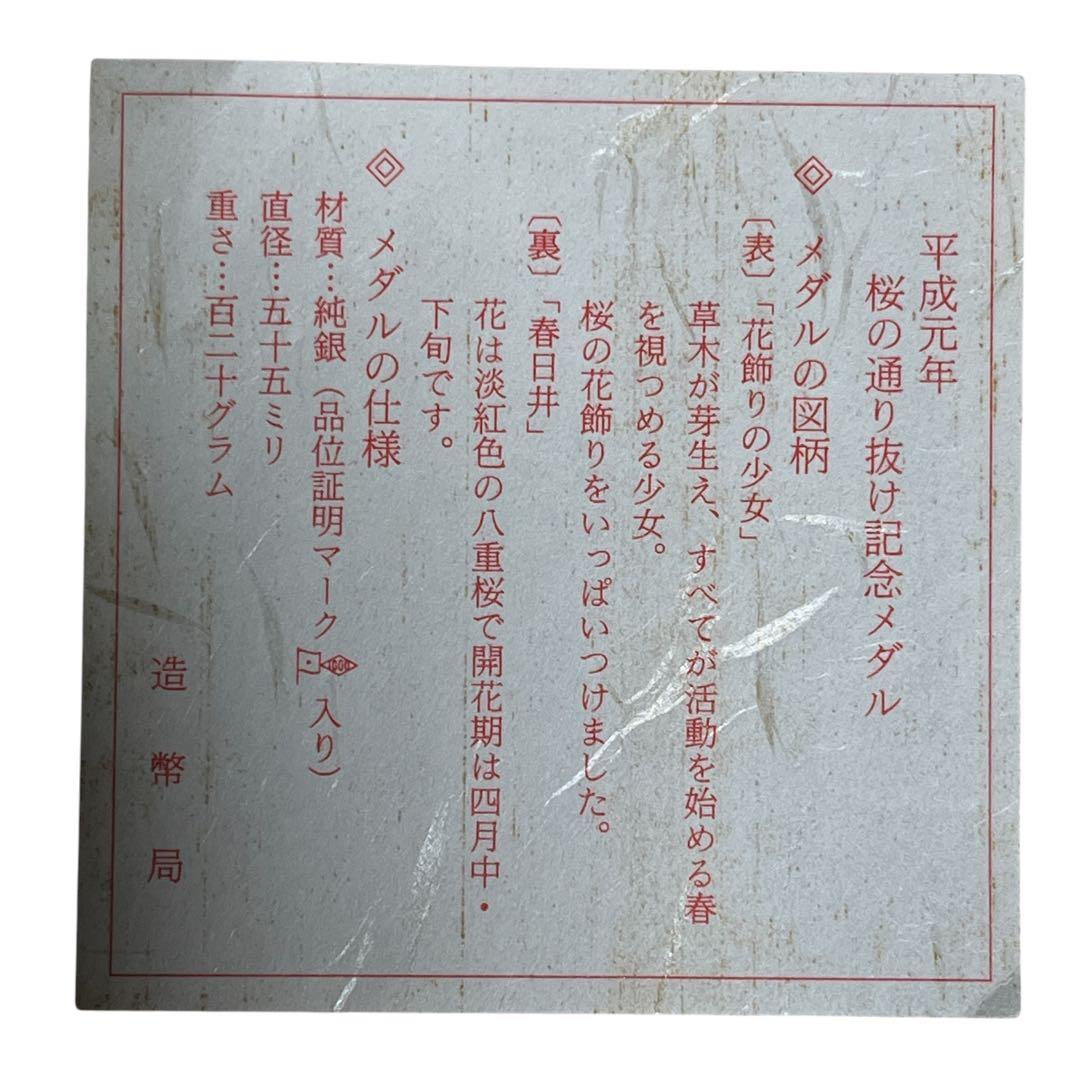 平成元年
桜の通り抜け記念メダル
メダルの図柄
〔表〕「花飾りの少女」
草木が芽生え、すべてが活動を始める春
を視つめる少女。
桜の花飾りをいっぱいつけました。
〔裏〕「春日井」
花は淡紅色の八重桜で開花期は四月中・
下旬です。
メダルの仕様
材質…純銀（品位証明マーク 入り）
直径…五十五ミリ
重さ…百二十グラム
造幣局